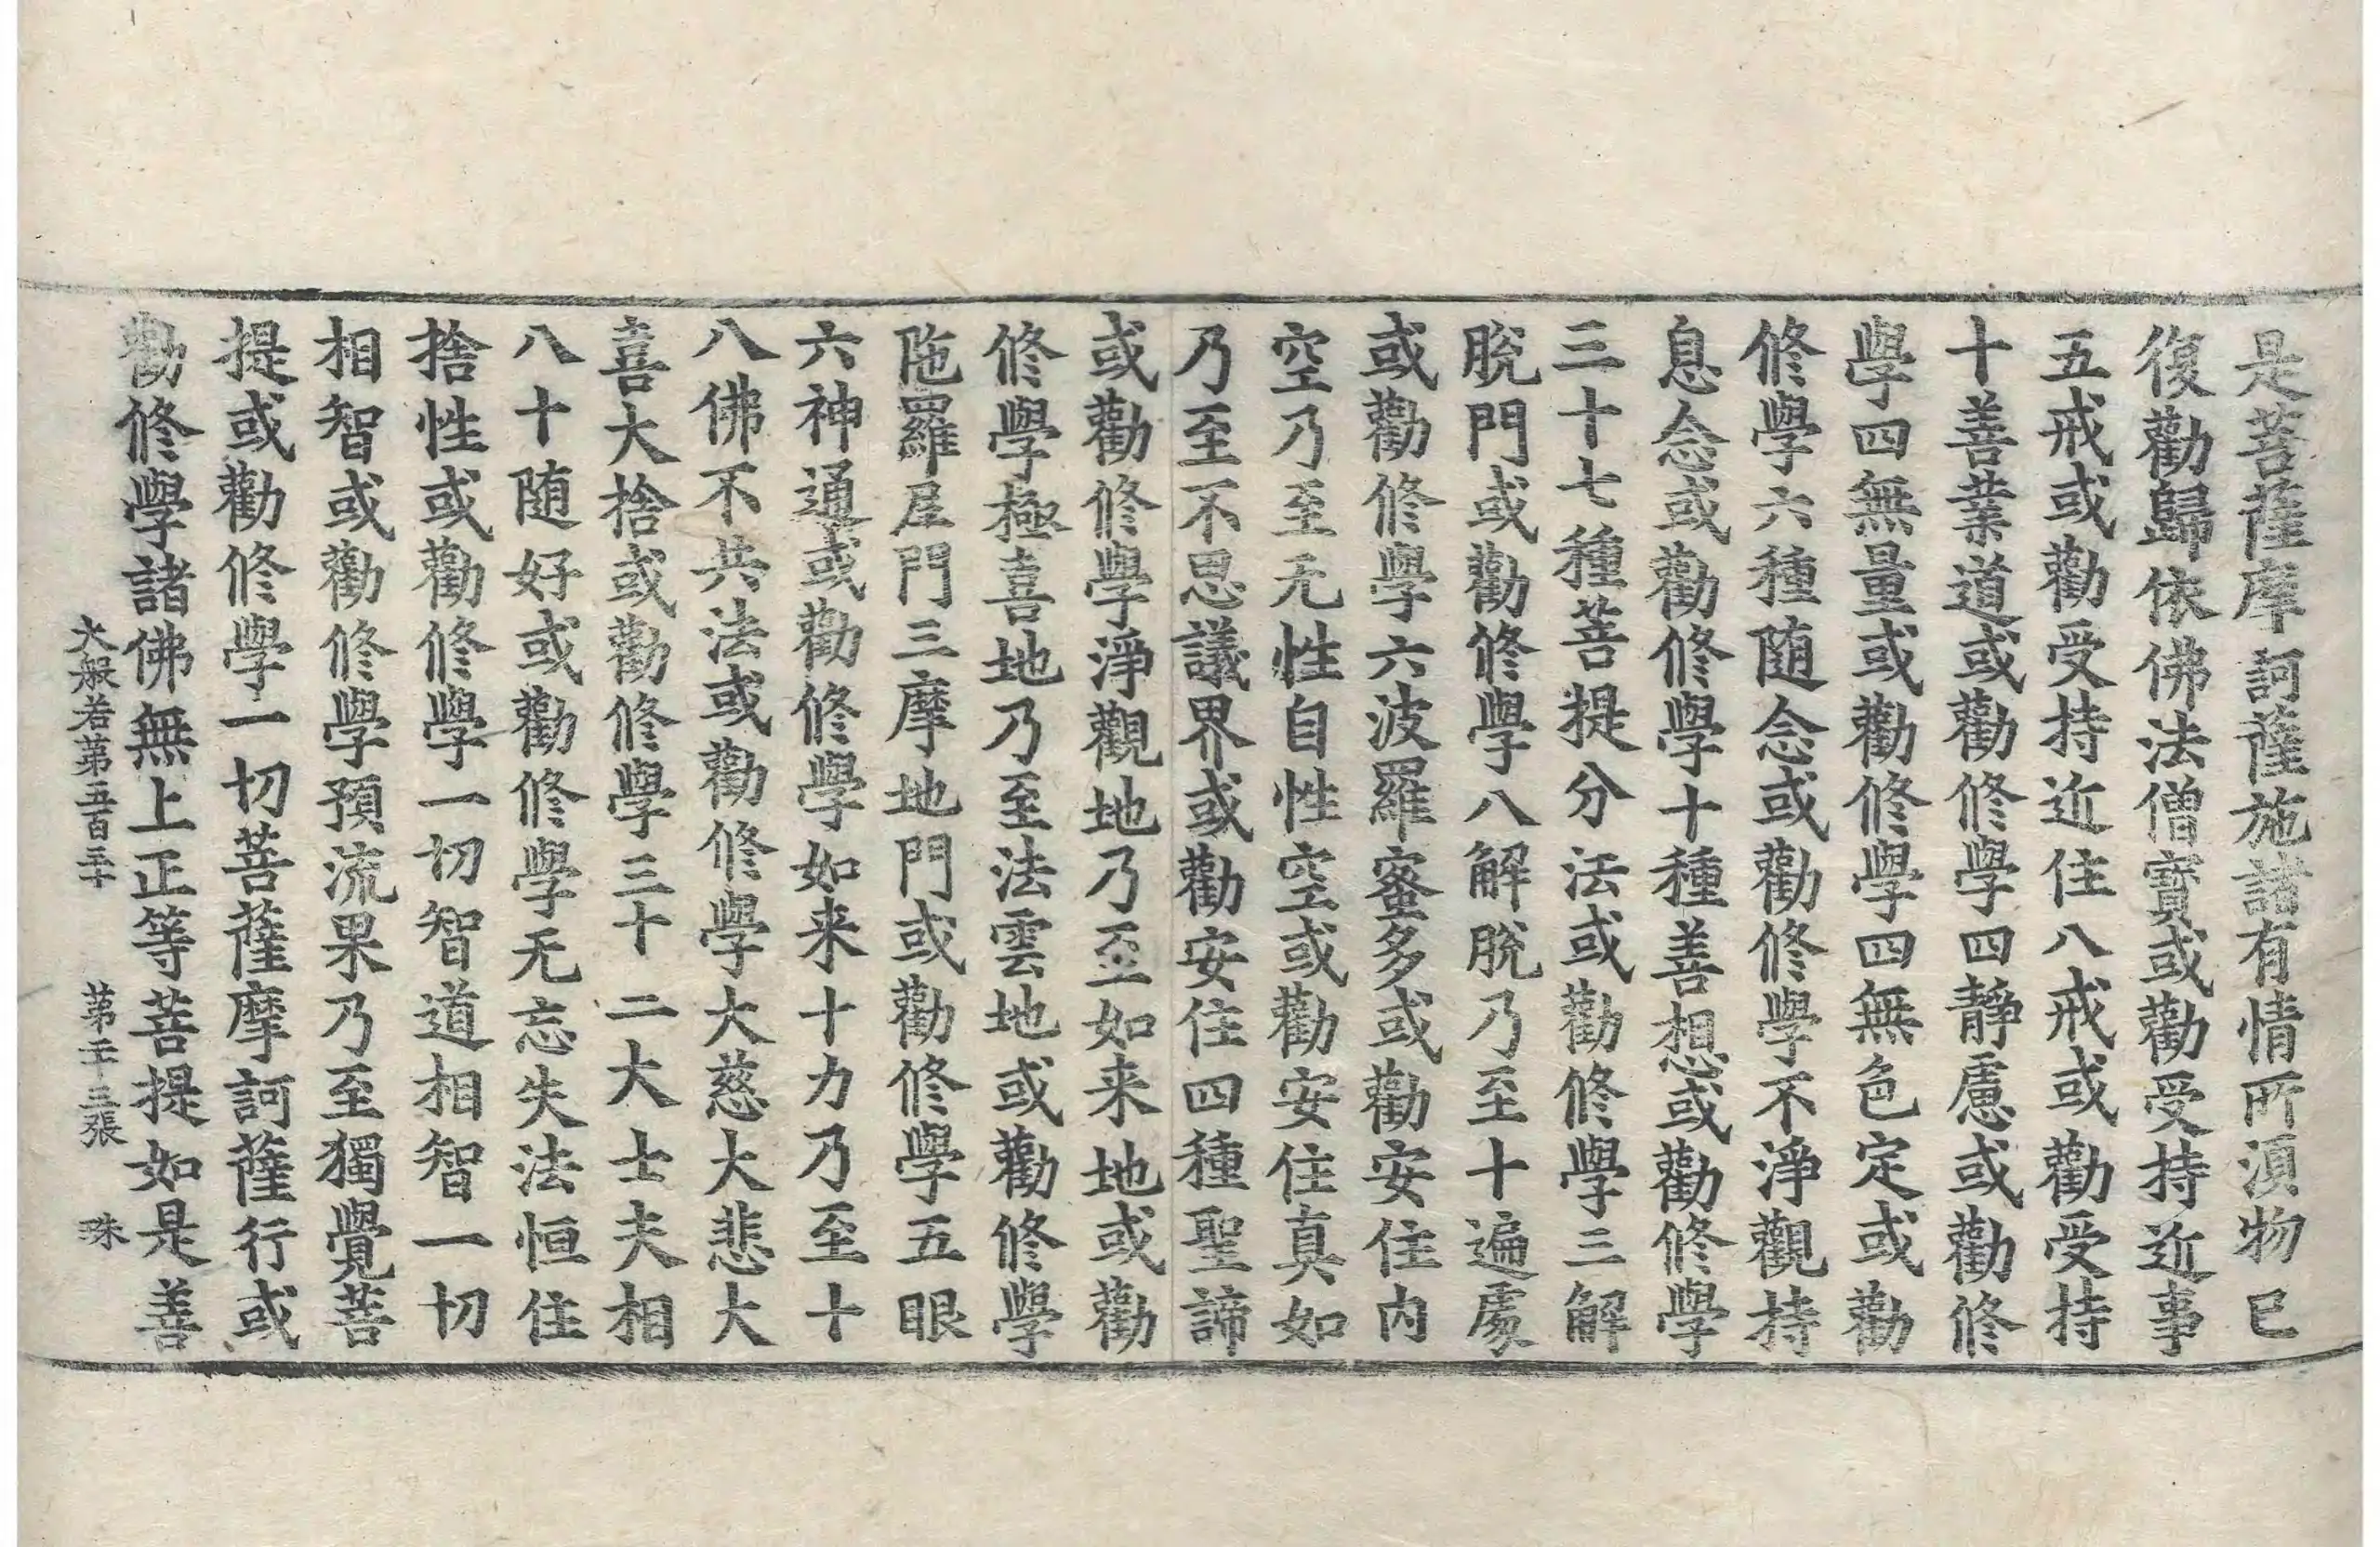 是菩薩摩訶薩施諸有情所須物已
復勸歸依佛法僧寶或勸受持近事
五戒或勸受持近住八戒或勸受持
十善業道或勸修學四靜慮或勸修
學四無量或勸修學四無色定或勸
修學六種随念或勸修學不淨觀持
息念或勸修學十種善想或勸修學
三十七種菩提分法或勸修學三解
脫門或勸修學八解脫乃至十遍處
或勸修學六波羅蜜多或勸安住内
空乃至无性自性空或勸安住真如
乃至不思議界或勸安住四種聖諦
或勸修學淨觀地乃至如来地或勸
修學極喜地乃至法雲地或勸修學
陁羅尼門三摩地門或勸修學五眼
六神通或勸修學如来十力乃至十
八佛不共法或勸修學大慈大悲大
喜大捨或勸修學三十二大士夫相
八十随好或勸修學无忘失法恒住
捨性或勸修學一切智道相智一切
相智或勸修學預流果乃至獨覺菩
提或勸修學一切菩薩摩訶薩行或
勸修學諸佛無上正等菩提如是善
大般若第五百三十 第二十三張 珠